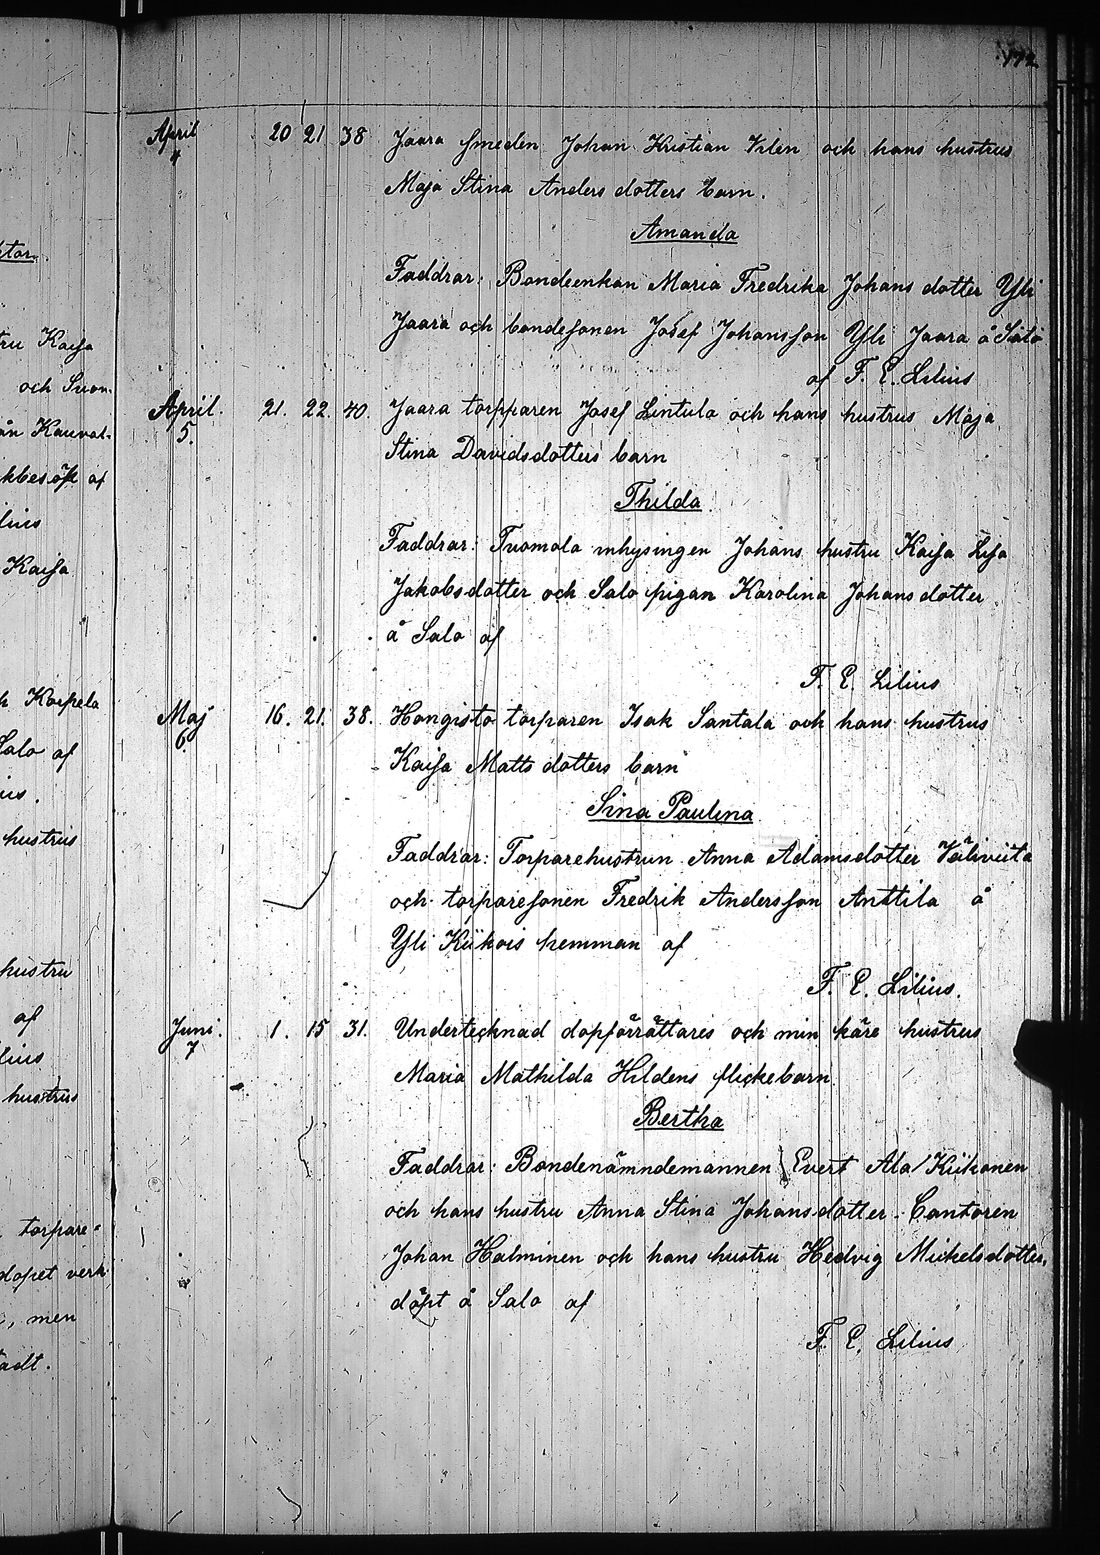 172
April 20 21 38 Jaara smeden Johan Kristian Vilen och hans hustrus
4
Maja Stina Anders dotters barn.
Amanda
Faddrar: Bondeenkan Maria Fredrika Johans dotter Yli
Jaara och bondesonen Josef Johansson Yli Jaara å Salo
af F. E. Lilius
April. 21. 22. 40. Jaara torpparen Josef Lintula och hans hustrus Maja
5.
Stina Davidsdotters barn
Thilda.
Faddrar: Tuomola inhysingen Johans hustru Kaisa Lisa
Jakobsdotter och Salo pigan Karolina Johansdotter
å Salo af
F. E. Lilius
Maj 16. 21. 38. Hongisto torparen Isak Santala och hans hustrus
6
Kaisa Matts dotters barn
Sina Paulina
Faddrar: Torparehustrun Anna Adamsdotter Väliviita
och torparesonen Fredrik Andersson Anttila å
Yli Kiikois hemman af
F. E. Lilius.
Juni. 1. 15 31. Undertecknad dopförrättares och min käre hustrus
7
Maria Mathilda Hildens flickebarn
Bertha
Faddrar: Bondenämndemannen Evert Ala Kiikonen
och hans hustru Anna Stina Johansdotter. Cantoren
Johan Halminen och hans hustru Hedvig Mickelsdotter,
döpt å Salo af
F. E. Lilius
ktor.
tru Kaisa
och Suon-
ån Kauvat-
kbesök af
lius
Kaisa
h Korpela
Salo af
ius.
hustrus
hustru
af
lius
hustrus
torpare-
dopet verk
, men
tadt.